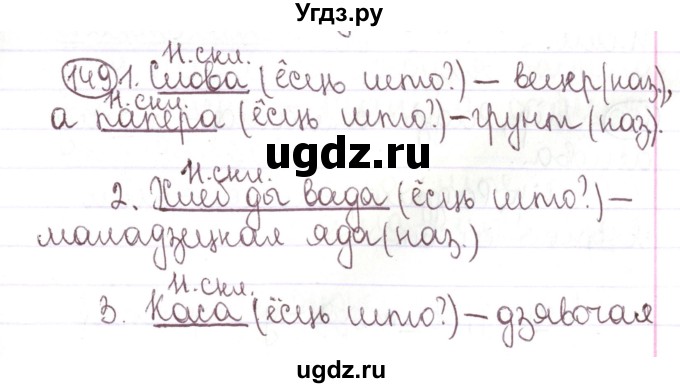 Угдз.ру
Н. скл.
149 1. Слова (ёсць што?) – вецер (наз.),
Н. скл.
а папера (ёсць што?) – грунт (наз).
угдз.ру
Н. скл.
2. Хлеб ды вада (ёсць што?) –
маладзецкая яда (наз.)
Н. скл.
3. Каса (ёсць што?) – дзявочая
угдз.ру